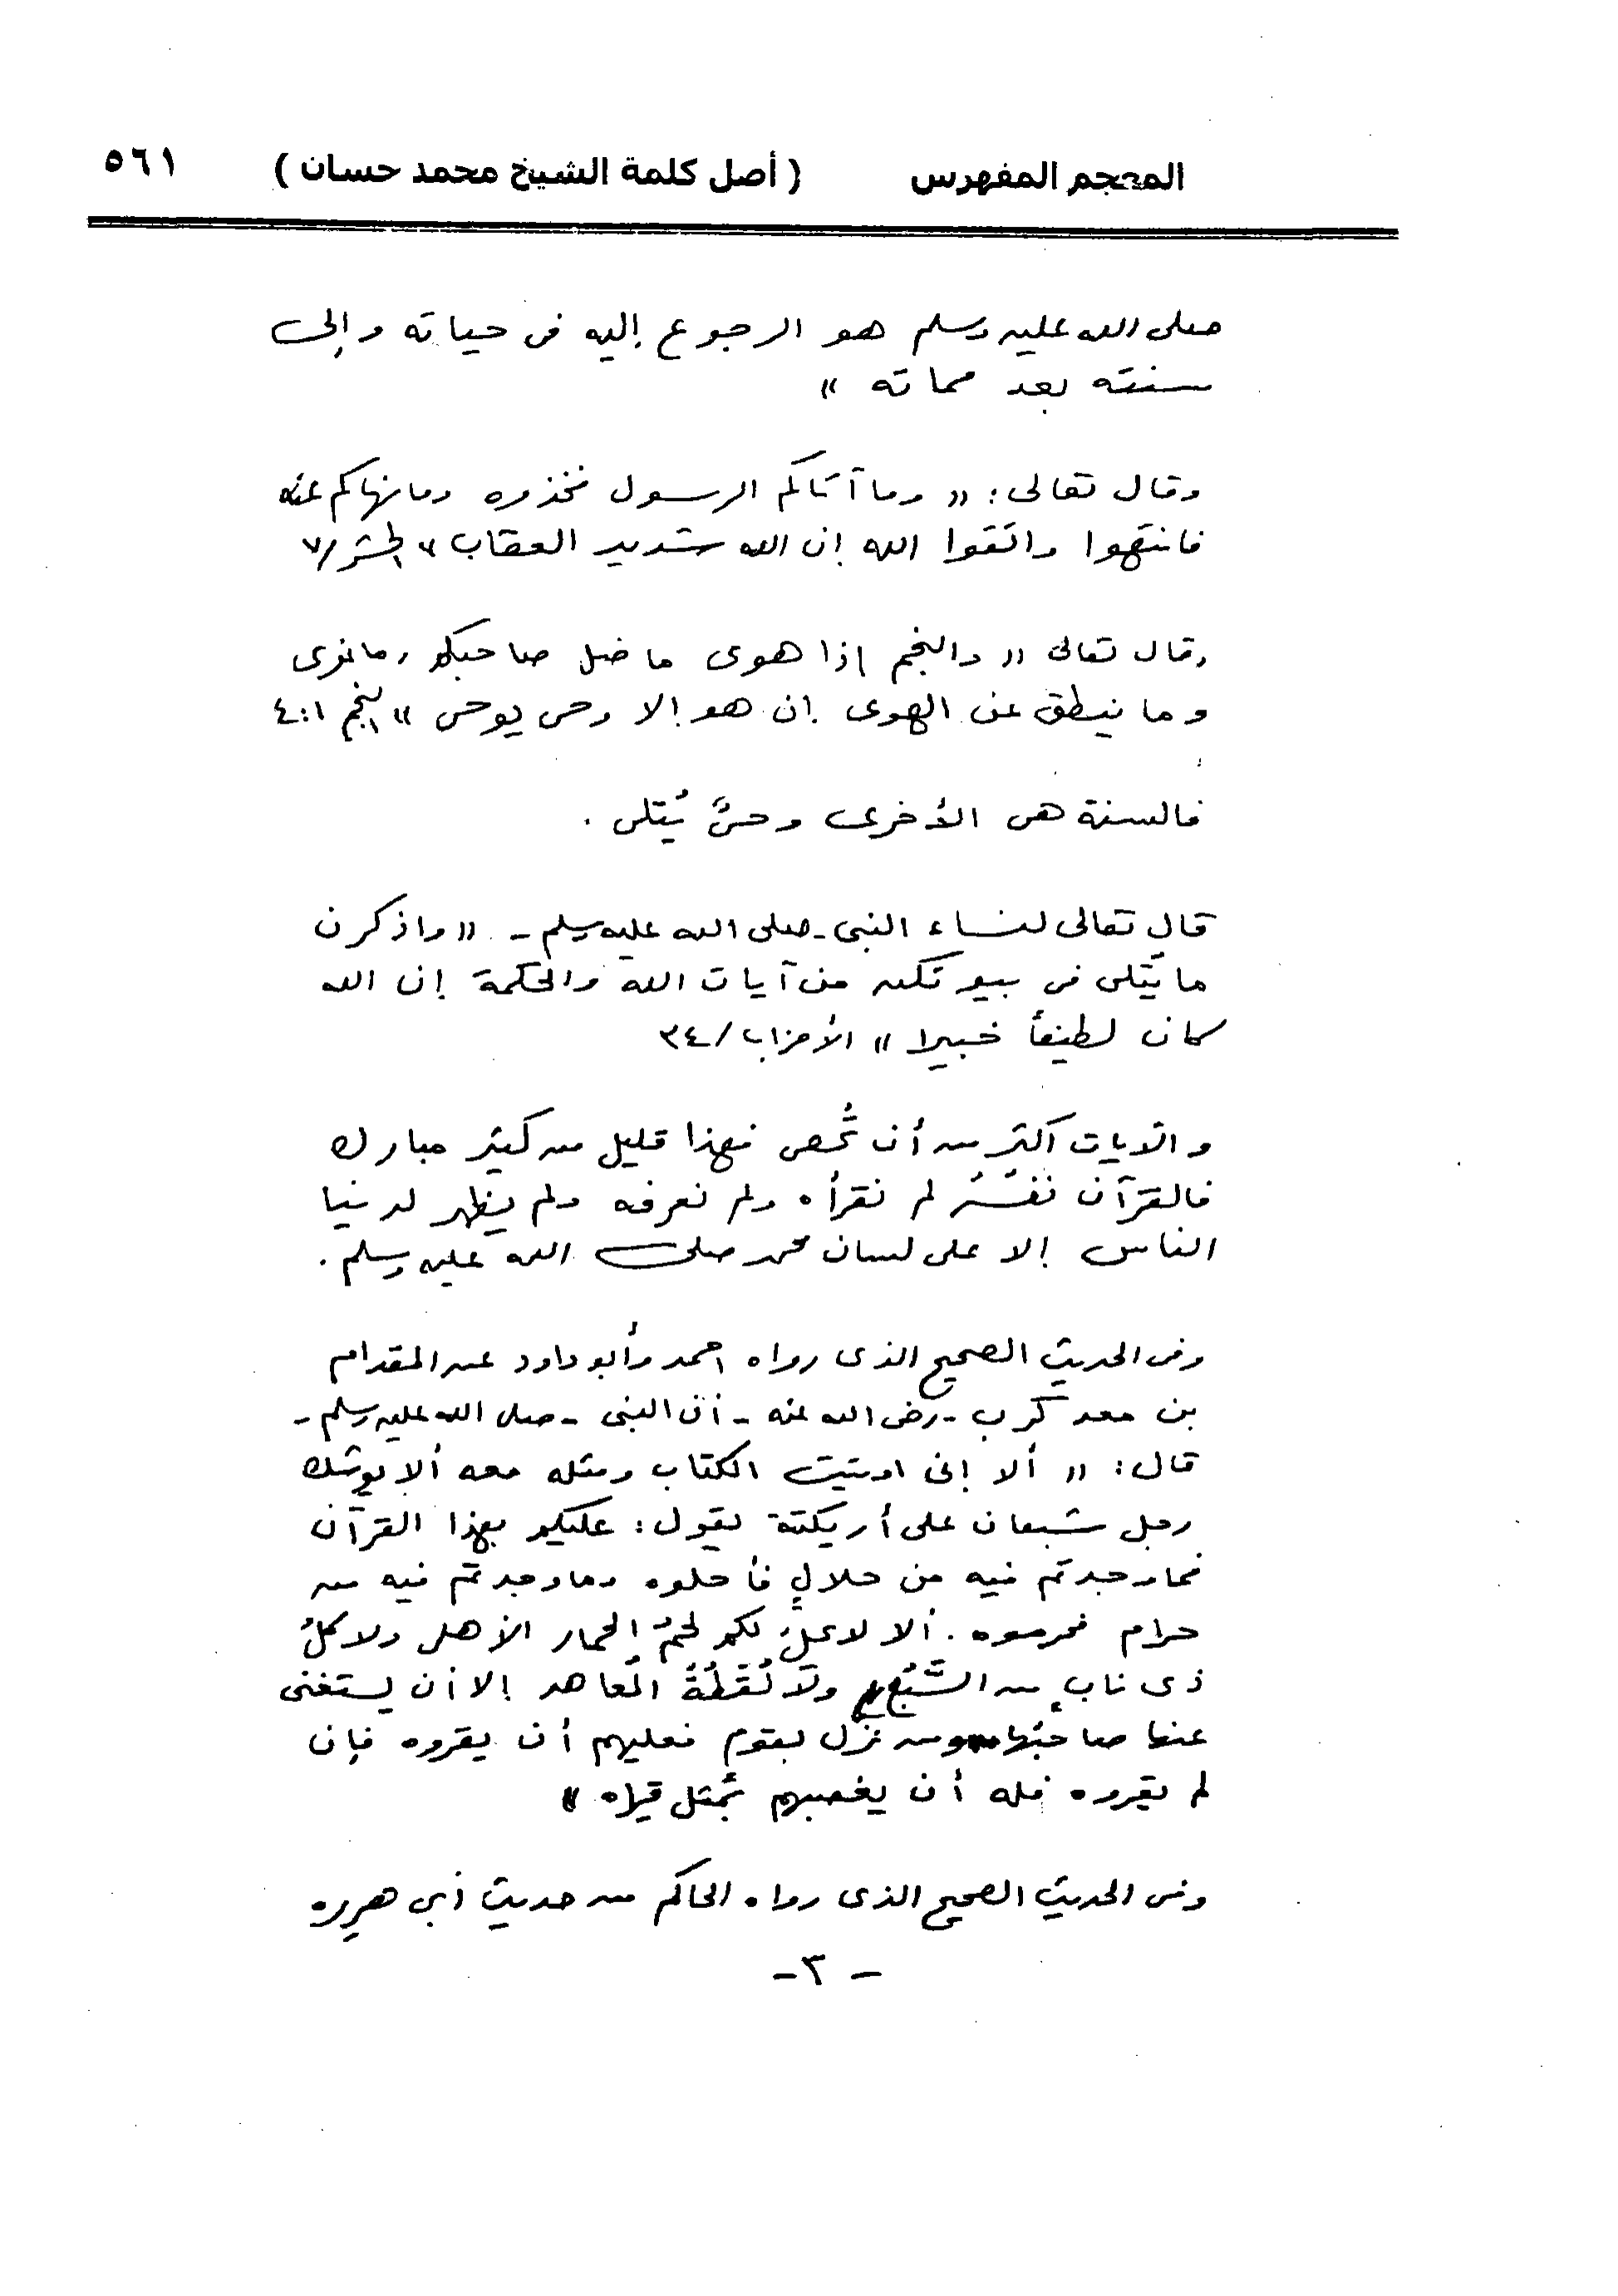 المعجم المفهرس ( أصل كلمة الشيخ محمد حسان ) ٥٦١
صلى الله عليه وسلم هو الرجوع إليه فى حياته وإلى
سنته بعد مماته »
وقال تعالى : « وما آتاكم الرسول فخذوه وما نهاكم عنه
فانتهوا واتقوا الله إن الله شديد العقاب » الحشر/٧
وقال تعالى « والنجم إذا هوى ما ضل صاحبكم وما غوى
وما ينطق عن الهوى إن هو إلا وحى يوحى » النجم ١:٤
فالسنة هى الأخرى وحىٌ يُتلى .
قال تعالى لنساء النبى - صلى الله عليه وسلم - « واذكرن
ما يتلى فى بيوتكن من آيات الله والحكمة إن الله
كان لطيفاً خبيرا » الأحزاب/٣٤
والآيات أكثر من أن تُحصى فهذا قليل من كثير مبارك
فالقرآن نفسُهُ لم نقرأه ولم نعرفه ولم يظهر لدنيا
الناس إلا على لسان محمد صلى الله عليه وسلم .
وفى الحديث الصحيح الذى رواه أحمد وأبو داود عن المقدام
بن معد كرب - رضى الله عنه - أن النبى - صلى الله عليه وسلم -
قال : « ألا إنى اوتيت الكتاب ومثله معه ألا يوشك
رجل شبعان على أريكته يقول : عليكم بهذا القرآن
فما وجدتم فيه من حلالٍ فأحلوه وما وجدتم فيه من
حرام فحرموه . ألا لا يحلُ لكم لحمُ الحمار الأهلى ولا كلُ
ذى نابٍ من السَّبُع ولا لُقَطَةُ المُعاهد إلا أن يستغنى
عنها صاحبُها ومن نزل بقوم فعليهم أن يقروه فإن
لم يقروه فله أن يغصبهم بمثل قراه »
وفى الحديث الصحيح الذى رواه الحاكم من حديث أبى هريره
- ٣ -